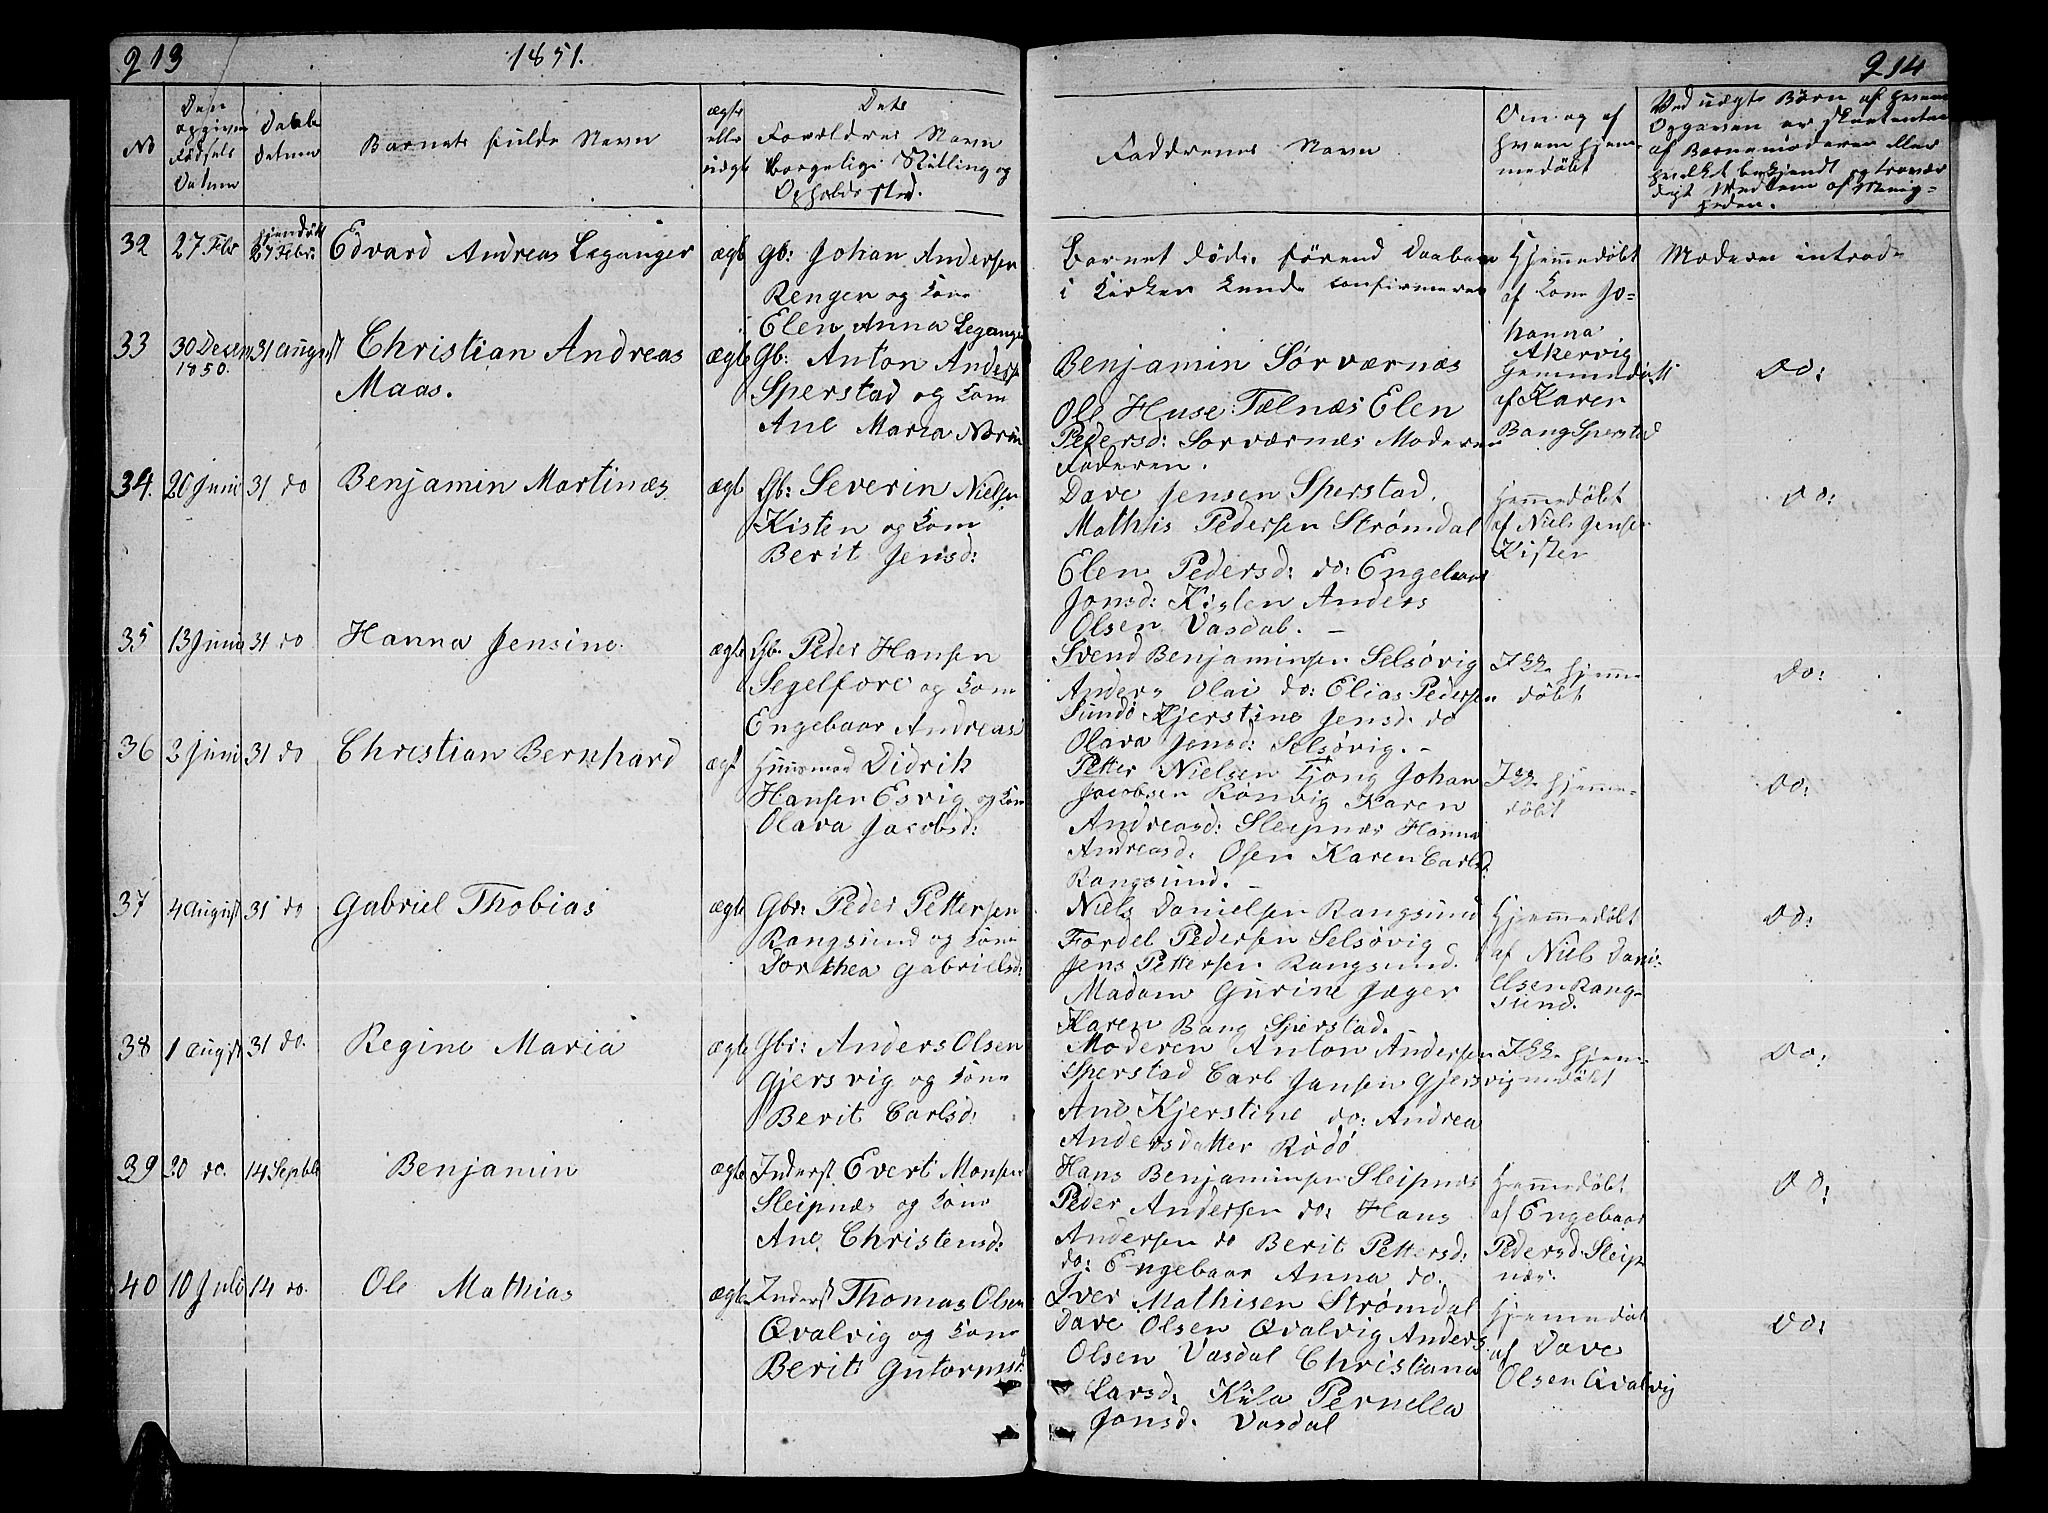 213
1851.
214
No
Den
opgivne
Fødsels
Datum
Daabs
Datum
Barnets fulde Navn
ægte
eller
uægte
Dets
Forældres Navn
borgelige Stilling og
Opholds sted.
Faddrenes Navn
Om og af
hvem hjem-
medøbt
Ved uægte Børn af hvem
Opgaven er
af Barnemoderen eller
hvilket bekjendt og trovær
digt Medlem af Menig-
heden.
32
27 Febr
hjemdøbt
27 Febr:
Edvard Andreas Leganger
ægte
Gb: Johan Andersen
Rengen og Kone
Elen Anna Leganger
Barnet døde førend Daaben
i Kirken kunde confirmeres
Hjemmedøbt
af Kone Jo-
hanna
Akervig
Moderen introd.
33
30 Decem
1850.
31 august
Christian Andreas
Maas.
ægte
Gb: Anton Anders
Sperstad og Kone
Ane Maria Norun
Benjamin Sørværnæs
Ole Huse Tælnæs Elen
Pedersd: Sorværnæs Moderen
Faderen.
hjemmedøbt
af Karen
Bang Sperstad
do:
34.
20 Juni
31 do
Benjamin Martinæs
ægte
Gb: Severin Nielsen
Kisten og Kone
Berit Jensd:
Dave Jensen Sperstad.
Mathis Pedersen Strømdal
Elen Pedersd: do: Engebaar
Jonsd: Kislen Anders
Olsen Vasdal. —
Hjemmedøbt
af Niels Jensen
Kisten
do:
35
13 Juni
31 do
Hanna Jensine
ægte
Gb. Peder Hansen
Segelfore og Kone
Engebaar Andreas
Svend Benjaminsen Selsøvig
Anders Olai do: Elias Pedersen
Sundø Kjerstine Jensd. do
Olava Jonsd: Selsøvig. —
Ikke hjemme
døbt
do:
36
3 Juni
31 do
Christian Bernhard
ægt
Huusmand Didrik
Hansen Esvig og Kone
Olava Jacobsd:
Petter Nielsen Tjong Johan
Jacobsen Rønvig Karen
Andreasd: Sleipnæs Hanna
Andreasd: Osen Karen Carlsd
Rangsund. —
Ikke hjemme-
døbt
do:
37
4 August
31 do
Gabriel Thobias
ægte
Gbr: Peder Pettersen
Rangsund og Kone
Dorthea Gabrielsd:
Niels Danielsen Rangsund
Fordel Pedersen Selsøvig
Jens Pettersen Rangsund.
Madam Gurine Jæger
Karen Bang Sperstad. —
Hjemmedøbt
af Niels Dani-
elsen Rang-
sund.
do:
38
1 august
31 do.
Regine Maria
ægte
Gbr: Anders Olsen
Gjersvig og Kone
Berit Carlsd:
Moderen Anton Andersen
Sperstad Carl Jansen Gjersvig
Ane Kjerstine do: Andrea
Andersdatter Rødø
Ikke hjem-
medøbt
do:
39
20 do.
14 Septbr
Benjamin
ægte
Inderst Evert Monsen
Sleipnæs og Kone
Ane Christensd:
Hans Benjaminsen Sleipnæs
Peder Andersen do: Hans
Andersen do Berit Pettersd:
do: Engebaar Anna do.
Hjemmedøbt
af Engebaar
Pedersd. Sleip
næs.
do:
40
10 Juli
14 do.
Ole Mathias
ægte
Inderst Thomas Olsen
Qvalvig og Kone
Berit Gutormsd:
Iver Mathisen Strømdal
Dave Olsen Qvalvig Anders
Olsen Vasdal Christiana
Larsd: Kila Pernella
Jonsd. Vasdal
Hjemmedøbt
af Dave
Olsen Qvalvig
do: